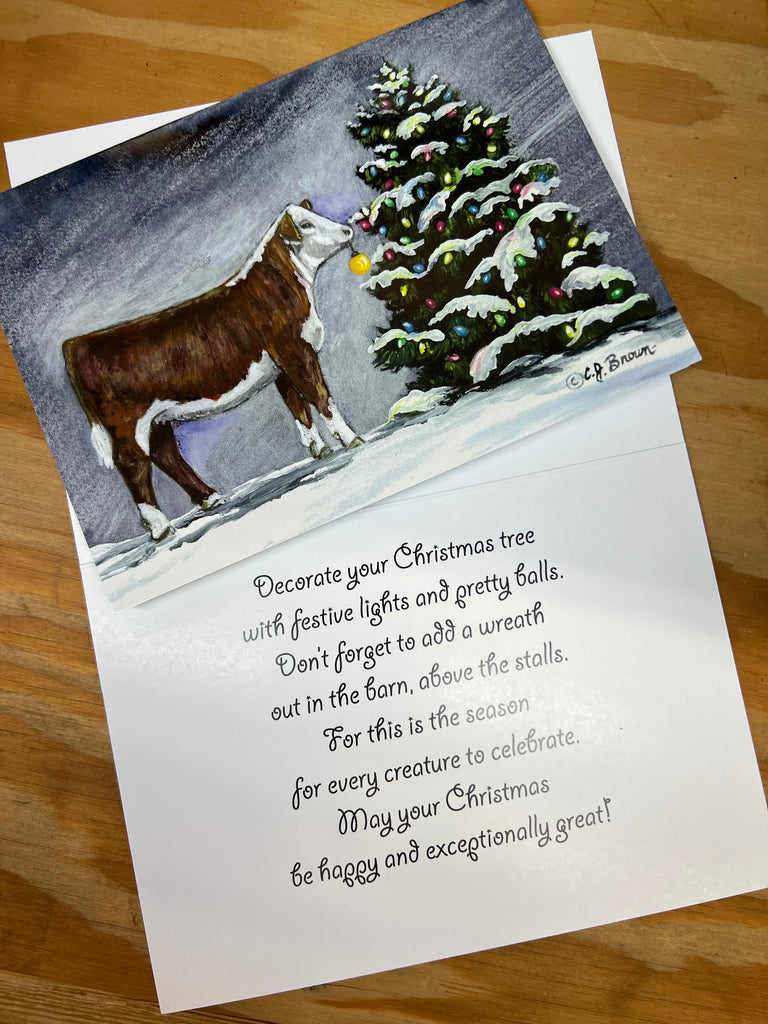 ©C.J. Brown
Decorate your Christmas tree
with festive lights and pretty balls.
Don't forget to add a wreath
out in the barn, above the stalls.
For this is the season
for every creature to celebrate.
May your Christmas
be happy and exceptionally great!